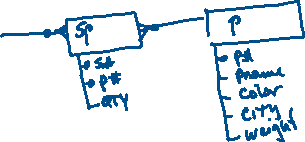 SP
P
S#
P#
QTY
P#
Pname
Color
CITY
weight